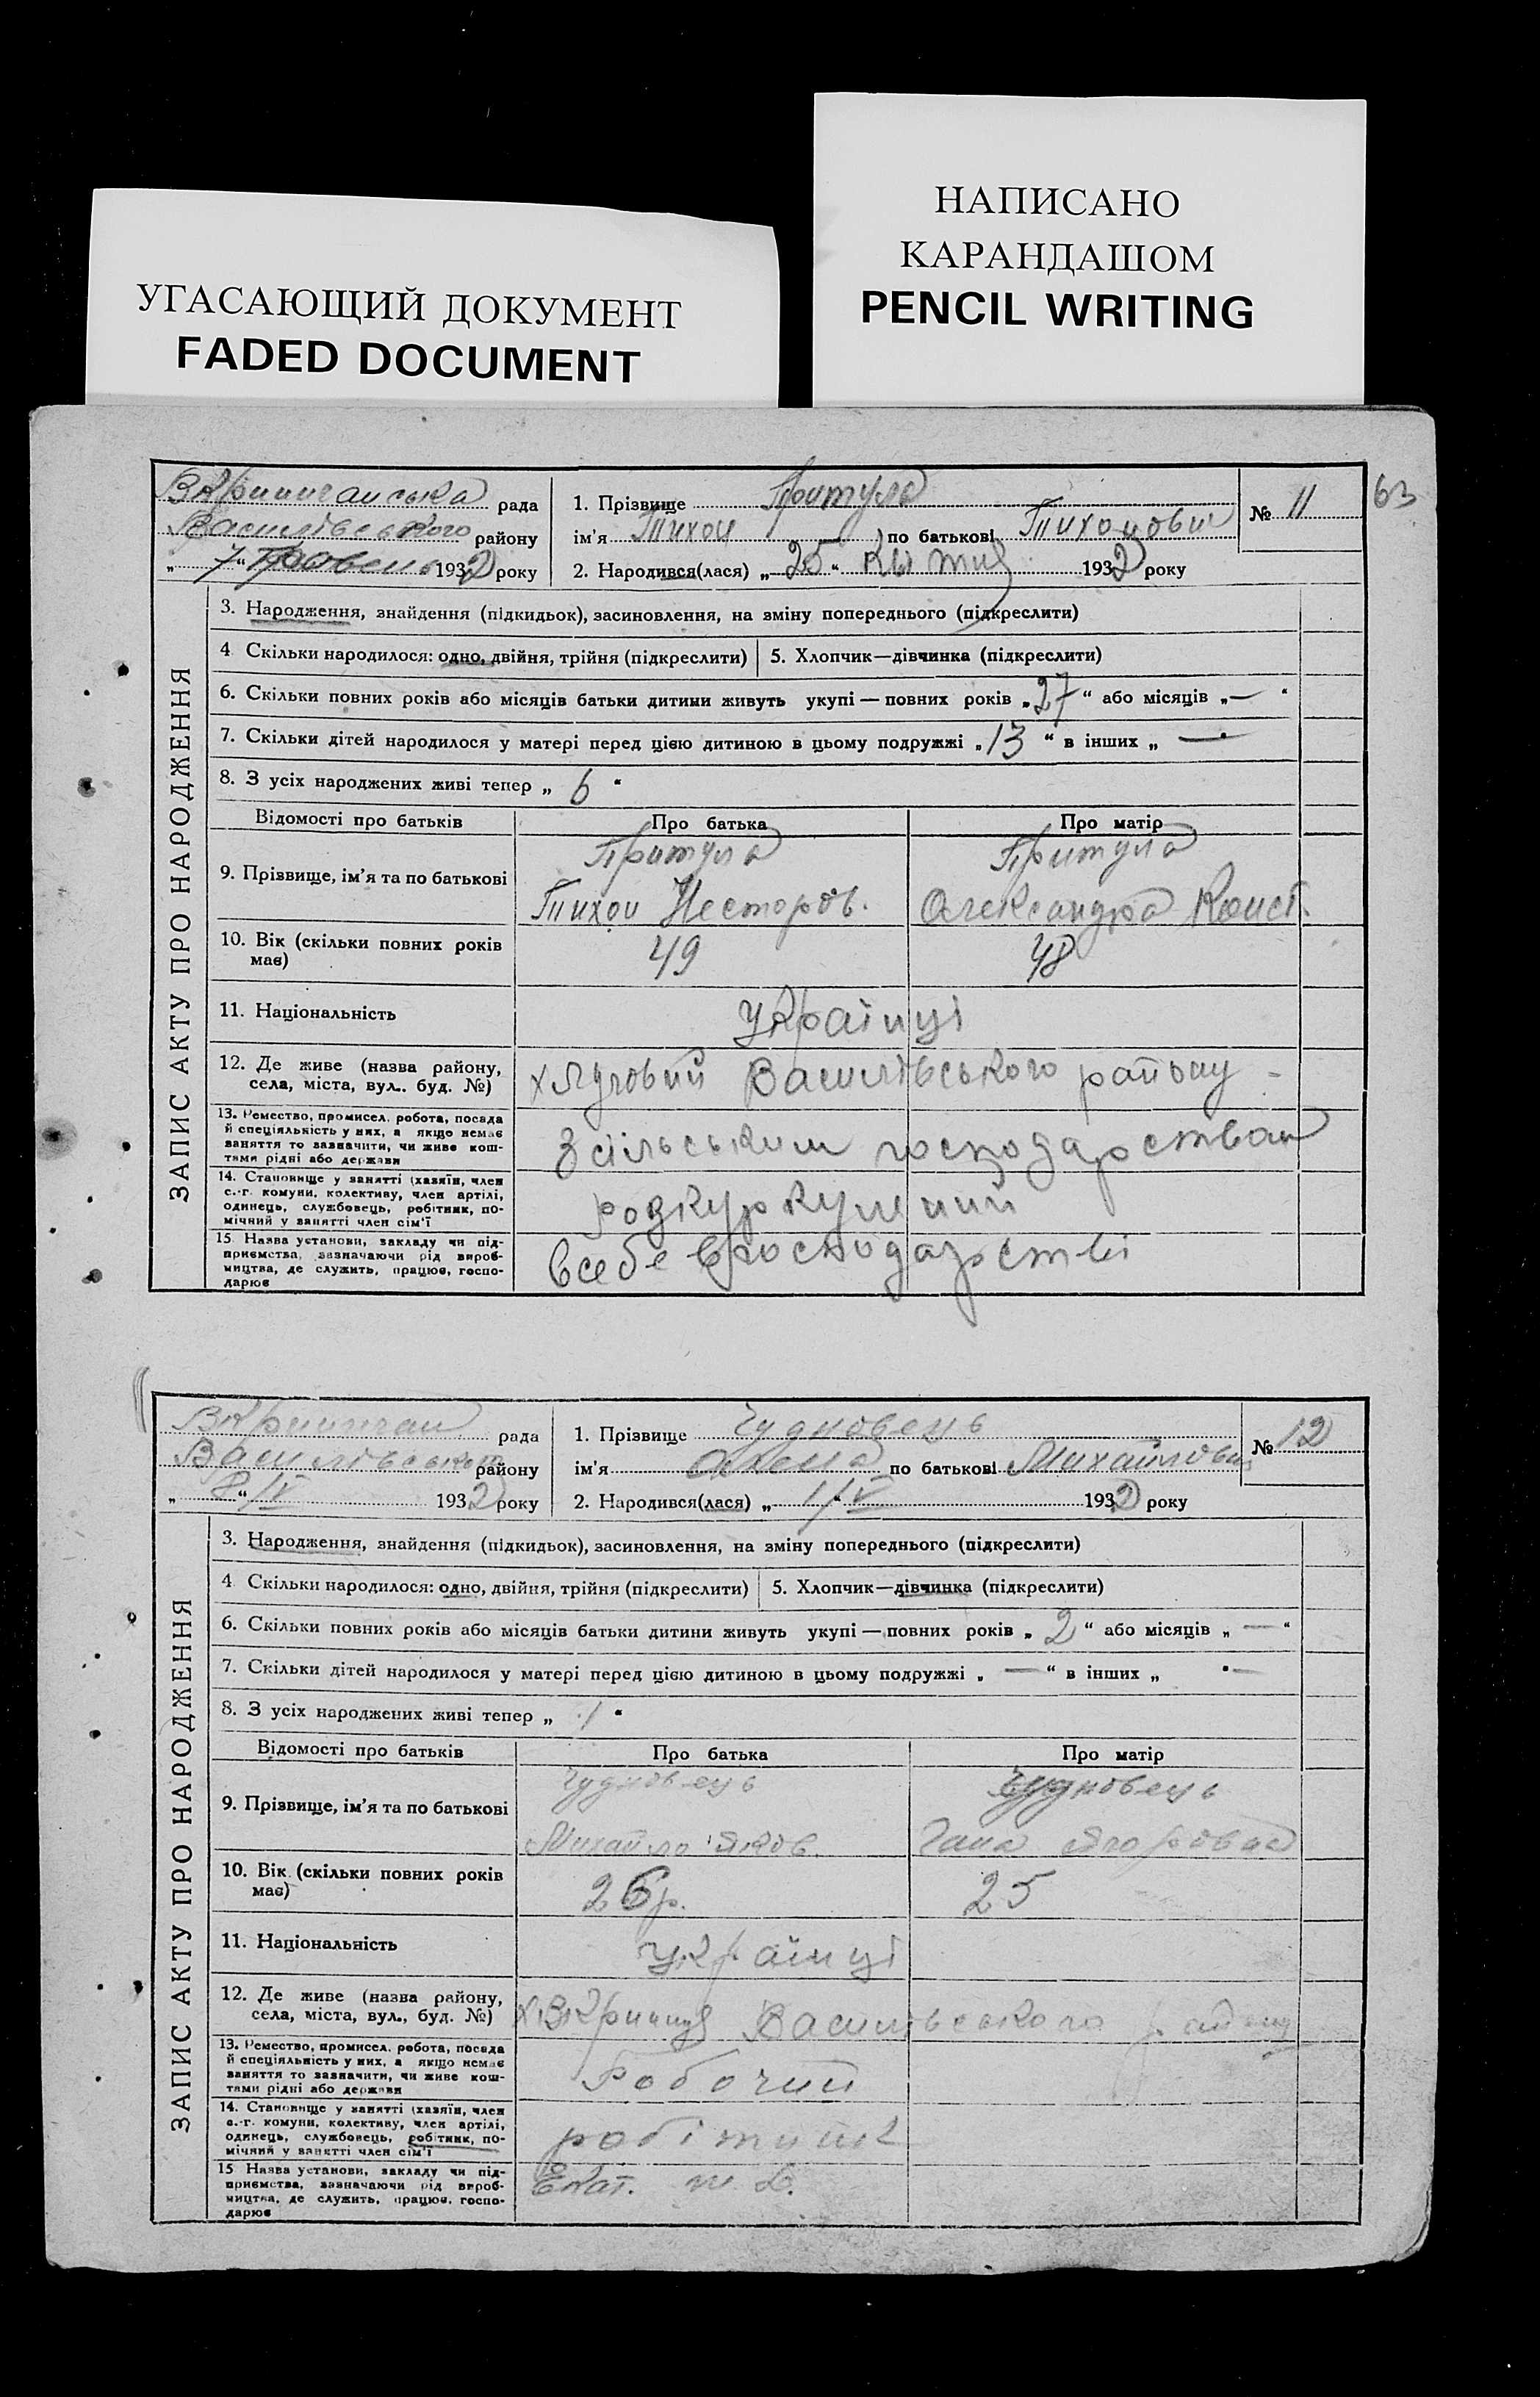 НАПИСАНО
КАРАНДАШОМ
PENCIL WRITING
УГАСАЮЩИЙ ДОКУМЕНТ
FADED DOCUMENT
63
ЗАПИС АКТУ ПРО НАРОДЖЕННЯ
ВКриничанська рада
Василівського району
„ 7 “ Травень 1932 року
1. Прізвище Притула
ім'я Тихон по батькові Тихонович
№ 11
2. Народився(лася) „ 25 “ 1932 року
3. Народження, знайдення (підкидьок), засиновлення, на зміну попереднього (підкреслити)
4 Скільки народилося: одно, двійня, трійня (підкреслити) 5. Хлопчик—дівчинка (підкреслити)
6. Скільки повних років або місяців батьки дитини живуть укупі — повних років „ 27 “ або місяців „ — “
7. Скільки дітей народилося у матері перед цією дитиною в цьому подружжі „ 13 “ в інших „ — “
8. З усіх народжених живі тепер „ 6 “
Відомості про батьків Про батька Про матір
9. Прізвище, ім'я та по батькові
Притула Притула
Тихон Несторов. Олександра Конст.
10. Вік (скільки повних років має) 49 48
11. Національність Українці
12. Де живе (назва району, села, міста, вул.. буд. №) Василівського району
13. Ремество, промисел, робота, посада й спеціяльність у них, а якщо немає заняття то зазначити, чи живе коштами рідні або держави
З сільським господарством
14. Становище у занятті (хазяїн, член с.-г. комуни, колективу, член артілі, одинець, службовець, робітник, помічний у занятті член сім'ї
розкуркулений
15. Назва установи, закладу чи підприємства, зазначаючи рід виробництва, де служить, працює, господарює
в себе в господарстві
ЗАПИС АКТУ ПРО НАРОДЖЕННЯ
ВКриничан рада
Василівського району
„ 8 “ /V 1932 року
1. Прізвище Чудновець
ім'я Олена по батькові Михайловн
№ 12
2. Народився(лася) „ 1/V “ 1932 року
3. Народження, знайдення (підкидьок), засиновлення, на зміну попереднього (підкреслити)
4 Скільки народилося: одно, двійня, трійня (підкреслити) 5. Хлопчик—дівчинка (підкреслити)
6. Скільки повних років або місяців батьки дитини живуть укупі — повних років „ 2 “ або місяців „ — “
7. Скільки дітей народилося у матері перед цією дитиною в цьому подружжі „ — “ в інших „ — “
8. З усіх народжених живі тепер „ 1 “
Відомості про батьків Про батька Про матір
9. Прізвище, ім'я та по батькові
Чудновець Чудновець
Михайло Яков. Гана
10. Вік (скільки повних років має) 26 р. 25
11. Національність Українці
12. Де живе (назва району, села, міста, вул., буд. №) х ВКриниця Василівського району
13. Ремество, промисел, робота, посада й спеціяльність у них, а якщо немає заняття то зазначити, чи живе коштами рідні або держави
Робочий
14. Становище у занятті (хазяїн, член с.-г. комуни, колективу, член артілі, одинець, службовець, робітник, помічний у занятті член сім'ї
робітник
15 Назва установи, закладу чи підприємства, зазначаючи рід виробництва, де служить, працює, господарює
Екат.